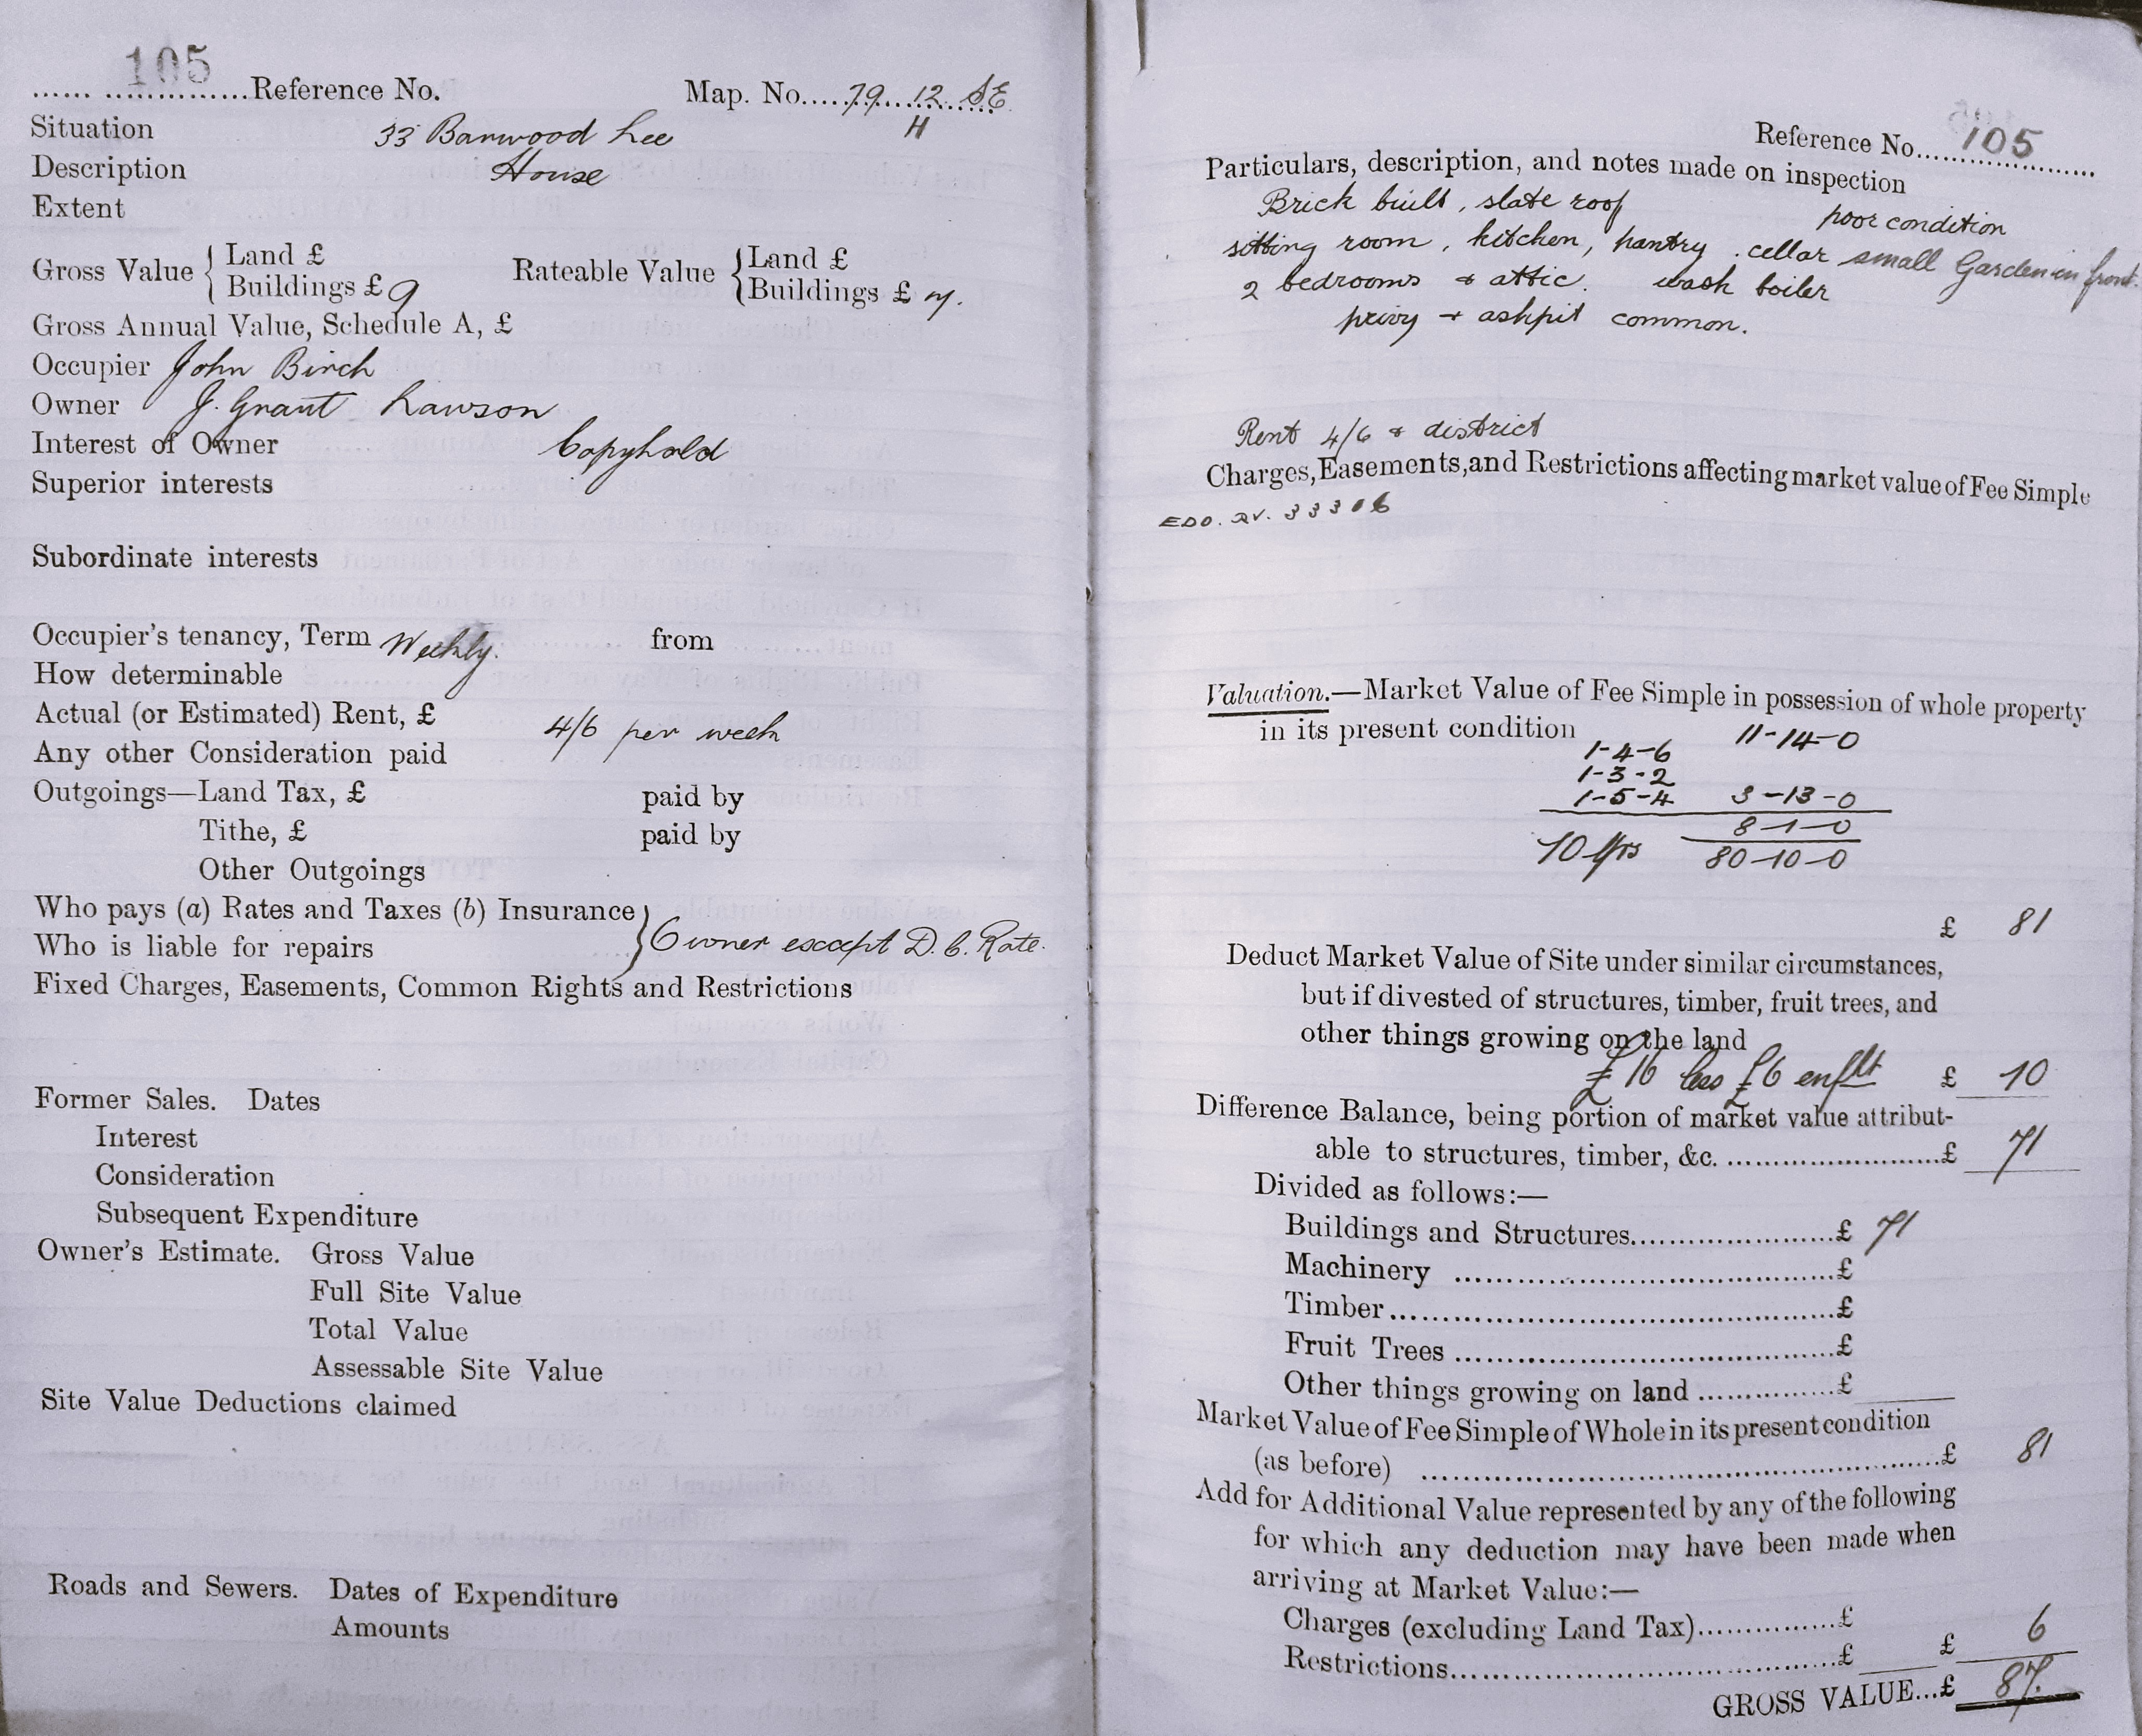 105
...... ...............Reference No. Map. No.....79...12...SE
H
Situation 33 Barwood Lee
Description House
Extent
Gross Value { Land £ Rateable Value { Land £
Buildings £ 9 Buildings £ 7.
Gross Annual Value, Schedule A, £
Occupier John Birch
Owner J. Grant Lawson
Interest of Owner Copyhold
Superior interests
Subordinate interests
Occupier's tenancy, Term Weekly. from
How determinable
Actual (or Estimated) Rent, £ 4/6 per week
Any other Consideration paid
Outgoings—Land Tax, £ paid by
Tithe, £ paid by
Other Outgoings
Who pays (a) Rates and Taxes (b) Insurance } Owner except D. C. Rate.
Who is liable for repairs
Fixed Charges, Easements, Common Rights and Restrictions
Former Sales. Dates
Interest
Consideration
Subsequent Expenditure
Owner's Estimate. Gross Value
Full Site Value
Total Value
Assessable Site Value
Site Value Deductions claimed
Roads and Sewers. Dates of Expenditure
Amounts
Reference No. 105
Particulars, description, and notes made on inspection
Brick built, slate roof poor condition
sitting room, kitchen, pantry. cellar small Garden in front.
2 bedrooms & attic. wash boiler
privy & ashpit common.
Rent 4/6 & district
Charges, Easements, and Restrictions affecting market value of Fee Simple
EDO. RV. 33306
Valuation.—Market Value of Fee Simple in possession of whole property
in its present condition 11-14-0
1-4-6
1-3-2
1-5-4 3-13-0
8-1-0
10 Yrs 80-10-0
£ 81
Deduct Market Value of Site under similar circumstances,
but if divested of structures, timber, fruit trees, and
other things growing on the land
£16 less £6 enflt £ 10
Difference Balance, being portion of market value attribut-
able to structures, timber, &c. ........................£ 71
Divided as follows:—
Buildings and Structures......................£ 71
Machinery .........................................£
Timber................................................£
Fruit Trees .........................................£
Other things growing on land ...............£
Market Value of Fee Simple of Whole in its present condition
(as before) .........................................................£ 81
Add for Additional Value represented by any of the following
for which any deduction may have been made when
arriving at Market Value:—
Charges (excluding Land Tax)...............£
Restrictions.........................................£ £ 6
GROSS VALUE...£ 87.